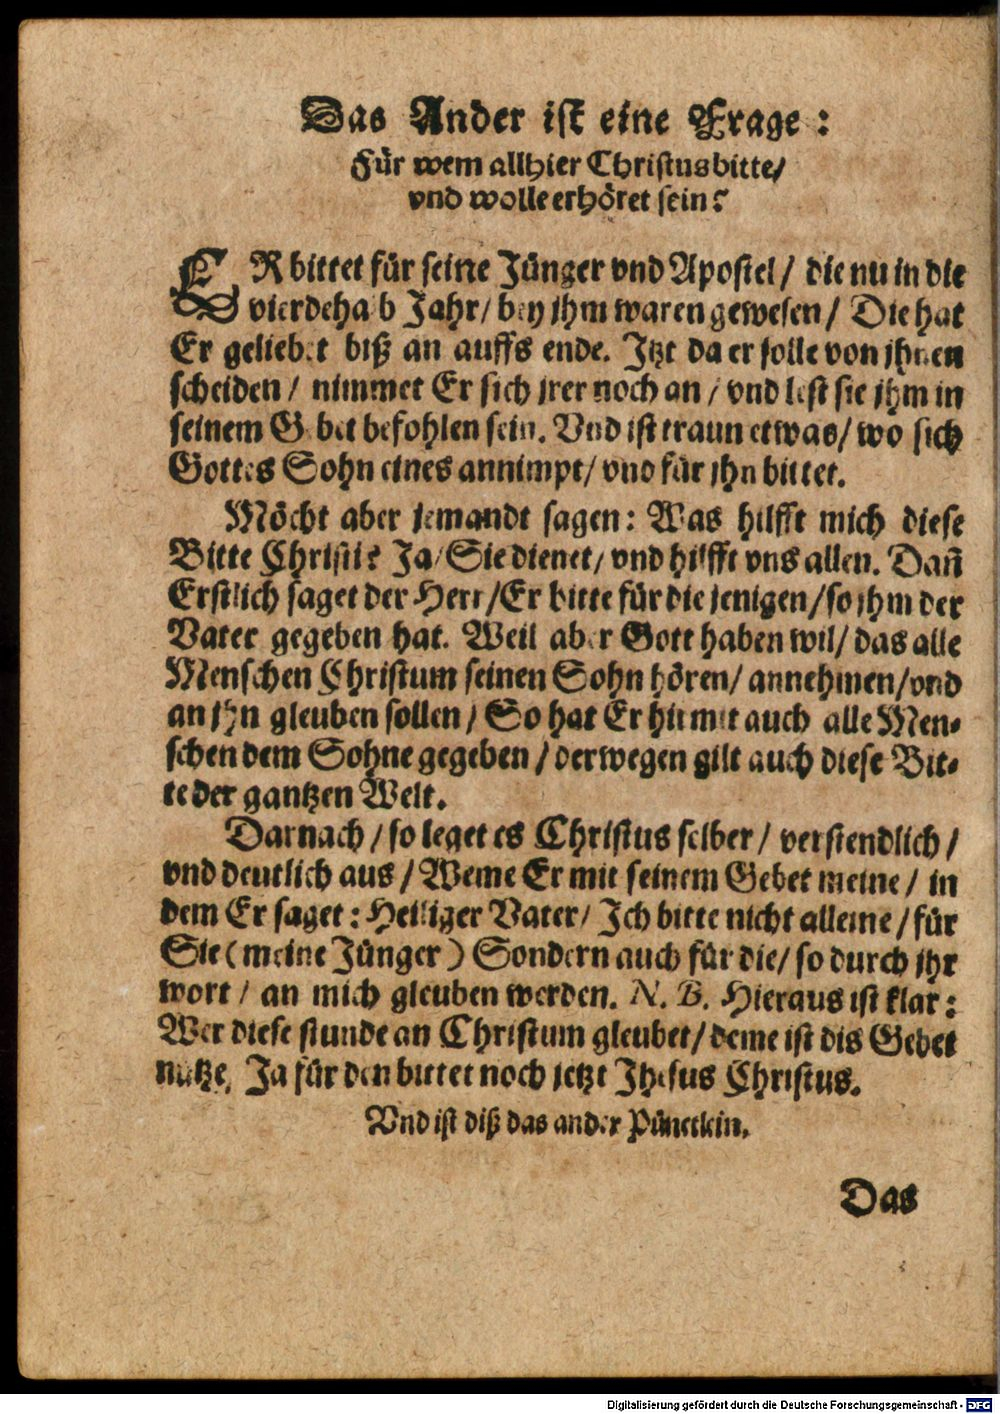 Das Ander ist eine Frage:
Für wem allhier Christus bitte/
vnd wolle erhöret sein?
ER bittet für seine Jünger vnd Apostel/ die nu in die
vierdehalb Jahr/ bey jhm waren gewesen/ Die hat
Er geliebet biß an auffs ende. Jtzt da er solle von jhnen
scheiden/ nimmet Er sich jrer noch an/ vnd lest sie jhm in
seinem Gebet befohlen sein. Vnd ist traun etwas/ wo sich
Gottes Sohn eines annimpt/ vnd für jhn bittet.
Möcht aber jemandt sagen: Was hilfft mich diese
Bitte Christi? Ja/ Sie dienet/ vnd hilfft vns allen. Dañ
Erstlich saget der Herr/ Er bitte für die jenigen/ so jhm der
Vater gegeben hat. Weil aber Gott haben wil/ das alle
Menschen Christum seinen Sohn hören/ annehmen/ vnd
an jhn gleuben sollen/ So hat Er hiemit auch alle Men-
schen dem Sohne gegeben/ derwegen gilt auch diese Bit-
te der gantzen Welt.
Darnach/ so leget es Christus selber/ verstendlich/
vnd deutlich aus/ Weme Er mit seinem Gebet meine/ in
dem Er saget: Heiliger Vater/ Ich bitte nicht alleine/ für
Sie (meine Jünger) Sondern auch für die/ so durch jhr
wort/ an mich gleuben werden. N. B. Hieraus ist klar:
Wer diese stunde an Christum gleubet/ deme ist dis Gebet
nütze, Ja für den bittet noch jetzt Jhesus Christus.
Vnd ist diß das ander Pünctlein.
Das
Digitalisierung gefördert durch die Deutsche Forschungsgemeinschaft - DFG